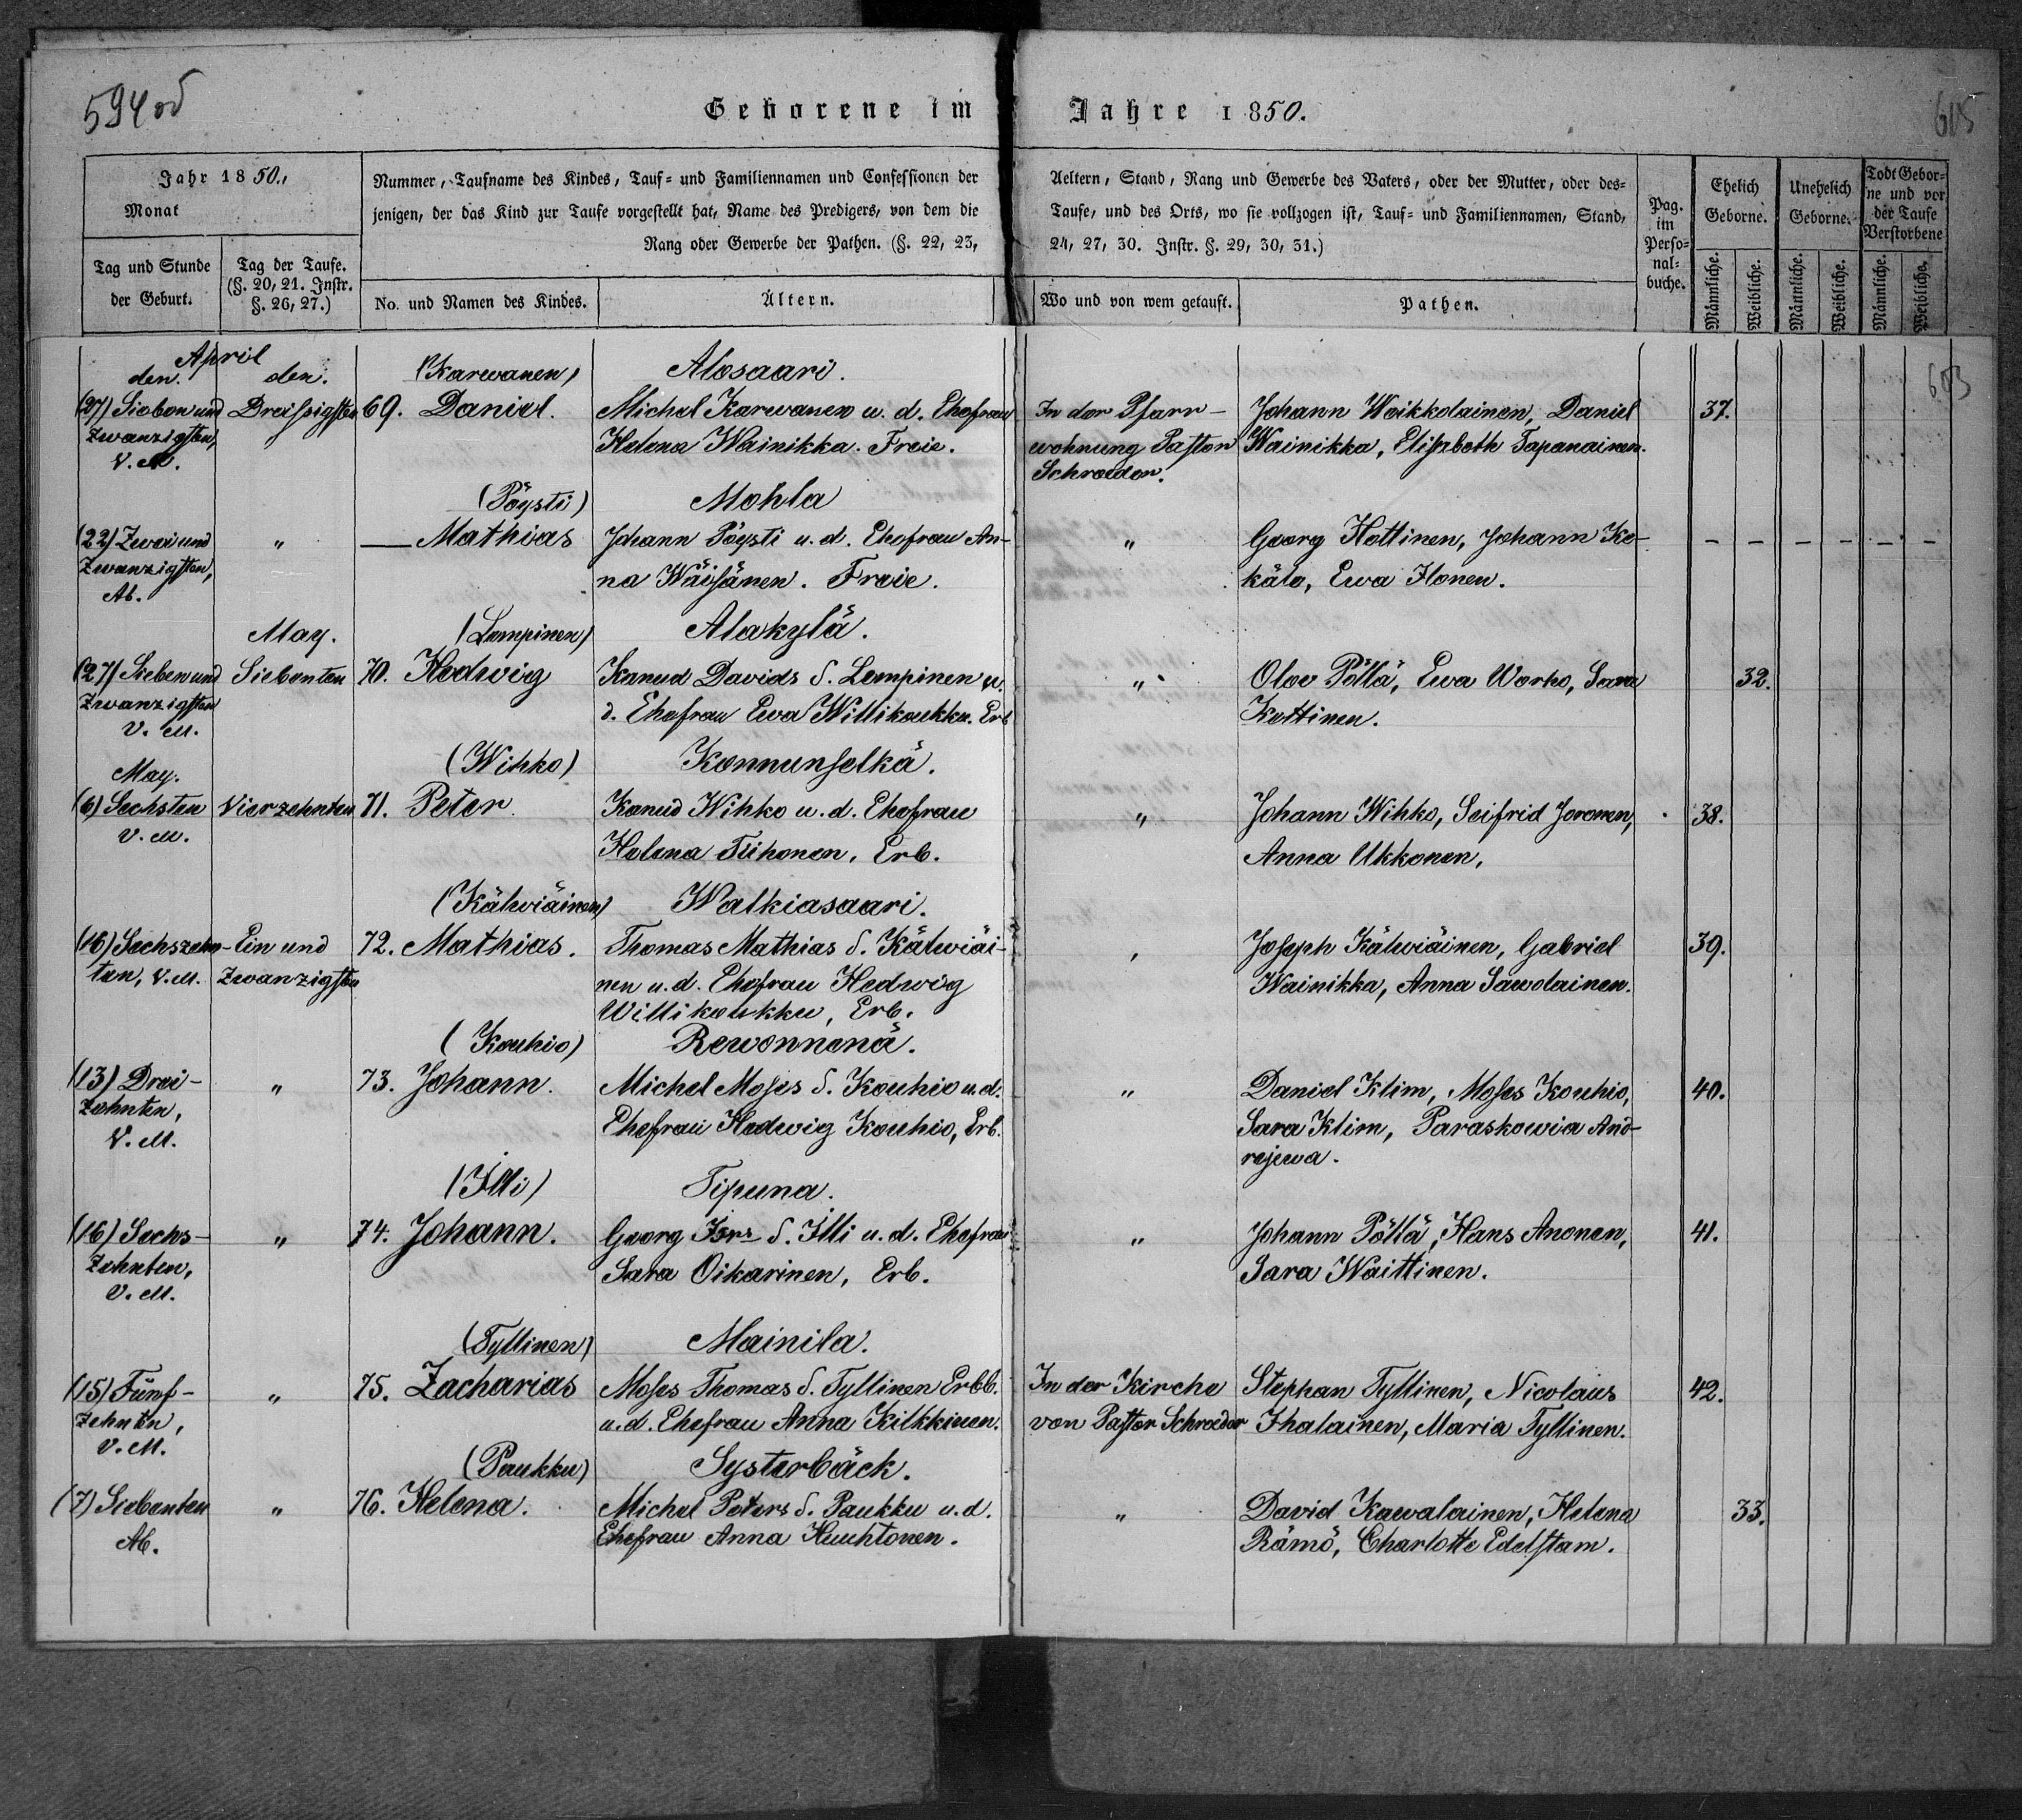 594 об
Geborene im Jahre 1850.
605
Jahr 1850.,
Monat
Tag und Stunde
der Geburt.
Tag der Taufe.
(§. 20, 21. Instr.
§. 26, 27.)
Nummer, Taufname des Kindes, Tauf- und Familiennamen und Confessionen der
jenigen, der das Kind zur Taufe vorgestellt hat, Name des Predigers, von dem die
Rang oder Gewerbe der Pathen. (§. 22, 23,
No. und Namen des Kindes.
Ältern.
Aeltern, Stand, Rang und Gewerbe des Vaters, oder der Mutter, oder des-
Taufe, und des Orts, wo sie vollzogen ist, Tauf- und Familiennamen, Stand,
24, 27, 30. Instr. §. 29, 30, 31.)
Wo und von wem getauft.
Pathen.
Pag.
im
Perso-
nal-
buche.
Ehelich
Geborne.
Unehelich
Geborne.
Todt Gebor-
ne und vor
der Taufe
Verstorbene
Männliche.
Weibliche.
Männliche.
Weibliche.
Männliche.
Weibliche.
April
den. den. (Karwanen) Alosaari.
603
(27) Sieben und Dreißigsten 69. Daniel. Michel Karwanen u. d. Ehefrau In der Pfarr- Johann Woikkolainen, Daniel 37.
Zwanzigsten, Helena Wainikka. Freie. wohnung Pastor Wainikka, Elisabeth Tapanainen.
V. M. Schroeder.
(Pöysti) Mohla
(22) Zwei und " — Mathias Johann Pöysti u. d. Ehefrau An- " Georg Hottinen, Johann Ko- - - - - - -
Zwanzigsten, na Wäisänen. Freie. kälo, Ewa Ilonen.
Ab.
May. (Lempinen) Alakylä.
(27) Sieben und Siebenten 70. Hedwig Kanud Davids S. Lempinen u. " Olov Pöllä, Ewa Worho, Sara 32.
Zwanzigsten d. Ehefrau Ewa Willikoukku. Erb Kottinen.
V. M.
(Wihko) Konnunselkä.
May.
(6) Sechsten Vierzehnten 71. Peter. Kanud Wihko u. d. Ehefrau " Johann Wihko, Seifrid Joronen, 38.
V. M. Helena Tiihonen, Erb. Anna Ukkonen,
(Kähwiäinen) Walkiasaari.
(16) Sechszehn- Ein und 72. Mathias. Thomas Mathias S. Kähwiäi- , Joseph Kähwiäinen, Gabriel 39.
ten, V. M. Zwanzigsten nen u. d. Ehefrau Hedwig Wainikka, Anna Sawolainen.
Willikoukku, Erb.
(Kouhio) Rewonnenä.
(13) Drei- " 73. Johann. Michel Moses S. Kouhio u. d. " Daniel Klim, Moses Kouhio, 40.
zehnten, Ehefrau Hedwig Kouhio, Erb. Sara Klim, Paraskowia And-
V. M. rejewa.
(Illi) Tipuna.
(16) Sechs- " 74. Johann. Georg S. Illi u. d. Ehefrau " Johann Pöllä, Hans Anonen, 41.
zehnten, Sara Oikarinen, Erb. Sara Waittinen.
V. M.
(Tyllinen) Mainila.
(15) Fünf- " 75. Zacharias Moses Thomas S. Tyllinen Erbb. In der Kirche Stephan Tyllinen, Nicolaus 42.
zehnten, u. d. Ehefrau Anna Kilkkinen. von Pastor Schroeder Ihalainen, Maria Tyllinen.
V. M.
(Paukku) Systerbäck.
(7) Siebenten " 76. Helena. Michel Peters S. Paukku u. d. " David Kawalainen, Helena 33.
Ab. Ehefrau Anna Huuhtonen. Rämö, Charlotte Edelstam.